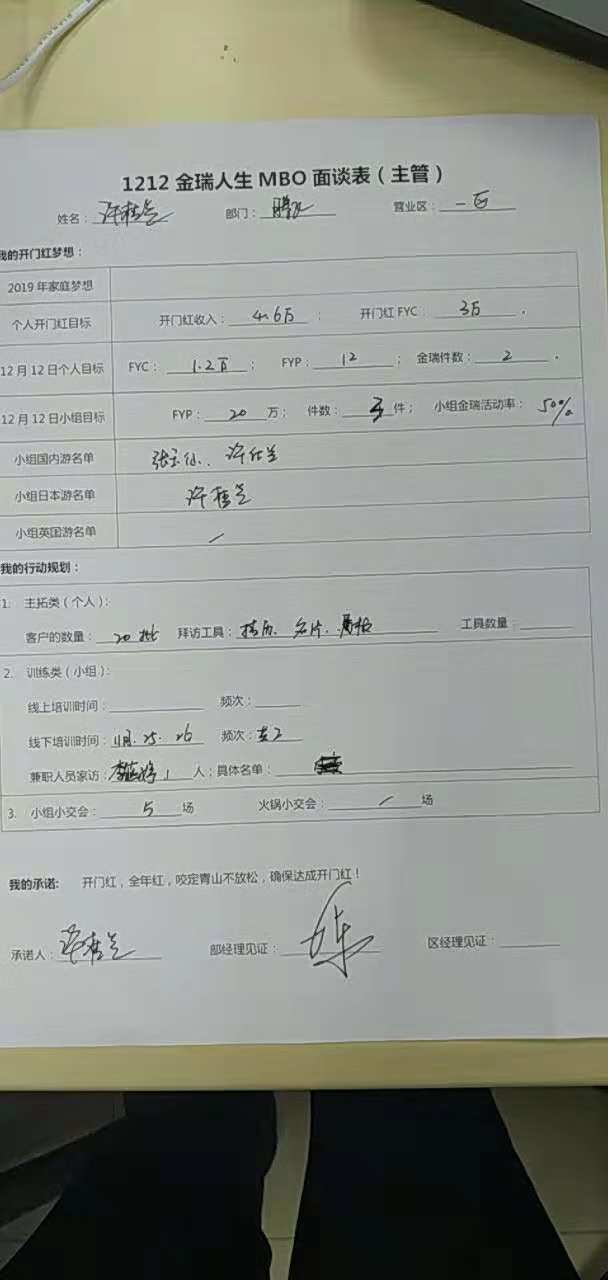 1212金瑞人生MBO面谈表（主管）
姓名：许桂兰 部门： 营业区：一区
我的开门红梦想：
2019年家庭梦想
个人开门红目标 开门红收入：4.6万； 开门红FYC：3万.
12月12日个人目标 FYC：1.2万； FYP：12； 金瑞件数：2.
12月12日小组目标 FYP：20万； 件数：3件； 小组金瑞活动率：50%
小组国内游名单
小组日本游名单 许桂兰
小组英国游名单 /
我的行动规划：
1. 主拓类（个人）：
客户的数量：20批 拜访工具： 名片、 工具数量：
2. 训练类（小组）：
线上培训时间： 频次：
线下培训时间：11月.25.26 频次：
兼职人员家访： 1人；具体名单：
3. 小组小交会：5场 火锅小交会：/场
我的承诺： 开门红，全年红，咬定青山不放松，确保达成开门红！
承诺人：许桂兰 部经理见证： 区经理见证：